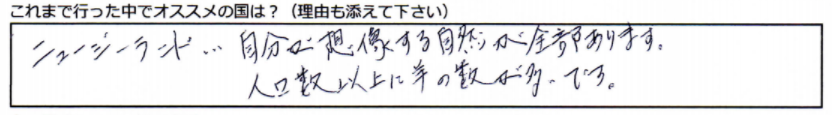 これまで行った中でオススメの国は？（理由も添えて下さい）
ニュージーランド… 自分が想像する自然が全部あります。
人口数以上に羊の数が多いです。